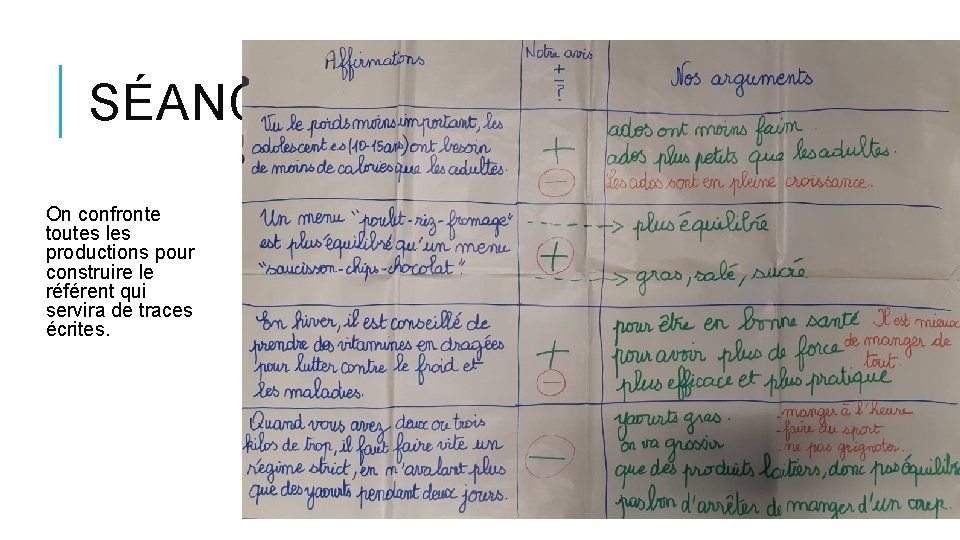 SÉANC
On confronte
toutes les
productions pour
construire le
référent qui
servira de traces
écrites.
Affirmations
Notre avis
+
-
?
Nos arguments
Vu le poids moins important, les
adolescentes (10-15ans) ont besoin
de moins de calories que les adultes.
+
-
ados ont moins faim.
ados plus petits que les adultes.
Les ados sont en pleine croissance.
Un menu "poulet-riz-fromage"
est plus équilibré qu'un menu
"saucisson-chips-chocolat".
+
-----> plus équilibré
-----> gras, salé, sucré
En hiver, il est conseillé de
prendre des vitamines en dragées
pour lutter contre le froid et
les maladies.
+
-
pour être en bonne santé
pour avoir plus de force
plus efficace et plus pratique
Il est mieux
de manger de
tout.
Quand vous avez deux ou trois
kilos de trop, il faut faire vite un
régime strict, en n'avalant plus
que des yaourts pendant deux jours.
-
yaourts gras.
on va grossir
que des produits laitiers, donc pas équilibré
pas bon d'arrêter de manger d'un coup.
- manger à l'heure
- faire du sport
- ne pas grignoter...